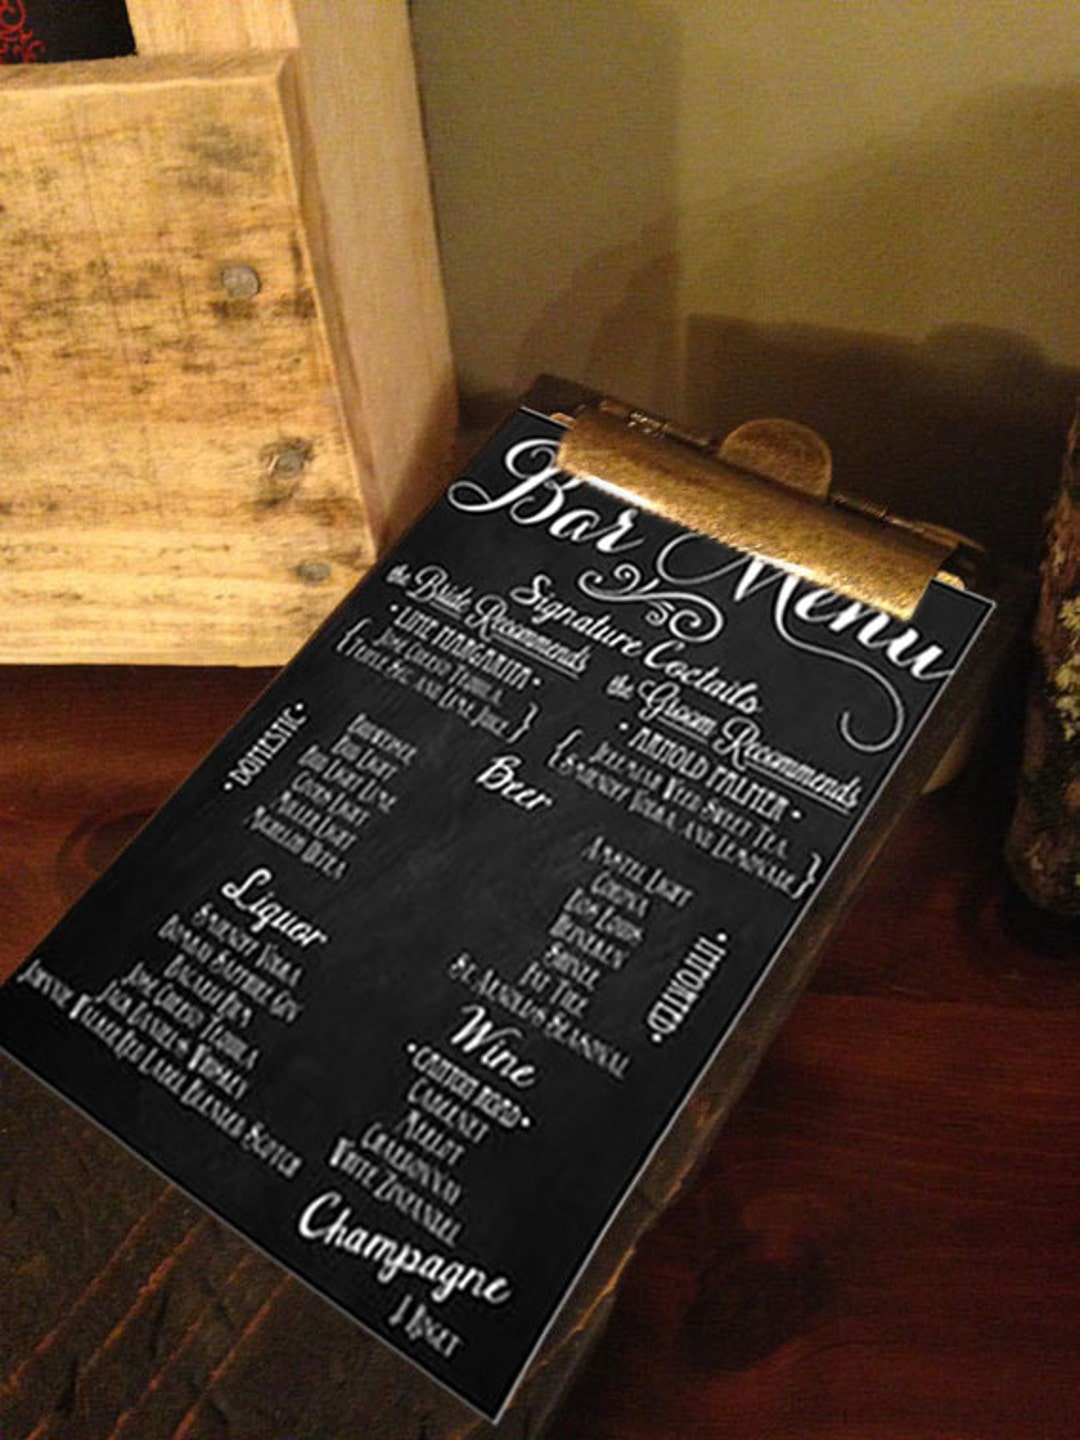 Bar Menu
Signature Coctails
the Bride Recommends
• LIME MARGARITA •
{ JOSE CUERVO TEQUILA,
TRIPLE SEC, AND LIME JUICE }
the Groom Recommends
• ARNOLD PALMER •
{ JEREMIAH WEED SWEET TEA,
SMIRNOFF VODKA, AND LEMONADE }
Beer
• DOMESTIC •
BUDWEISER
BUD LIGHT
BUD LIGHT LIME
COORS LIGHT
MILLER LIGHT
MICHELOB ULTRA
AMSTEL LIGHT
CORONA
DOS EQUIS
HEINEKEN
SHINER
FAT TIRE
ST. ARNOLDS SEASONAL
• IMPORTED •
Liquor
SMIRNOFF VODKA
BOMBAY SAPPHIRE GIN
BACARDI RUM
JOSE CUERVO TEQUILA
JACK DANIEL'S WHISKEY
JOHNNIE WALKER RED LABEL BLENDED SCOTCH
Wine
• CANYON ROAD •
CABERNET
MERLOT
CHARDONNAY
WHITE ZINFANDEL
Champagne
J. ROGET